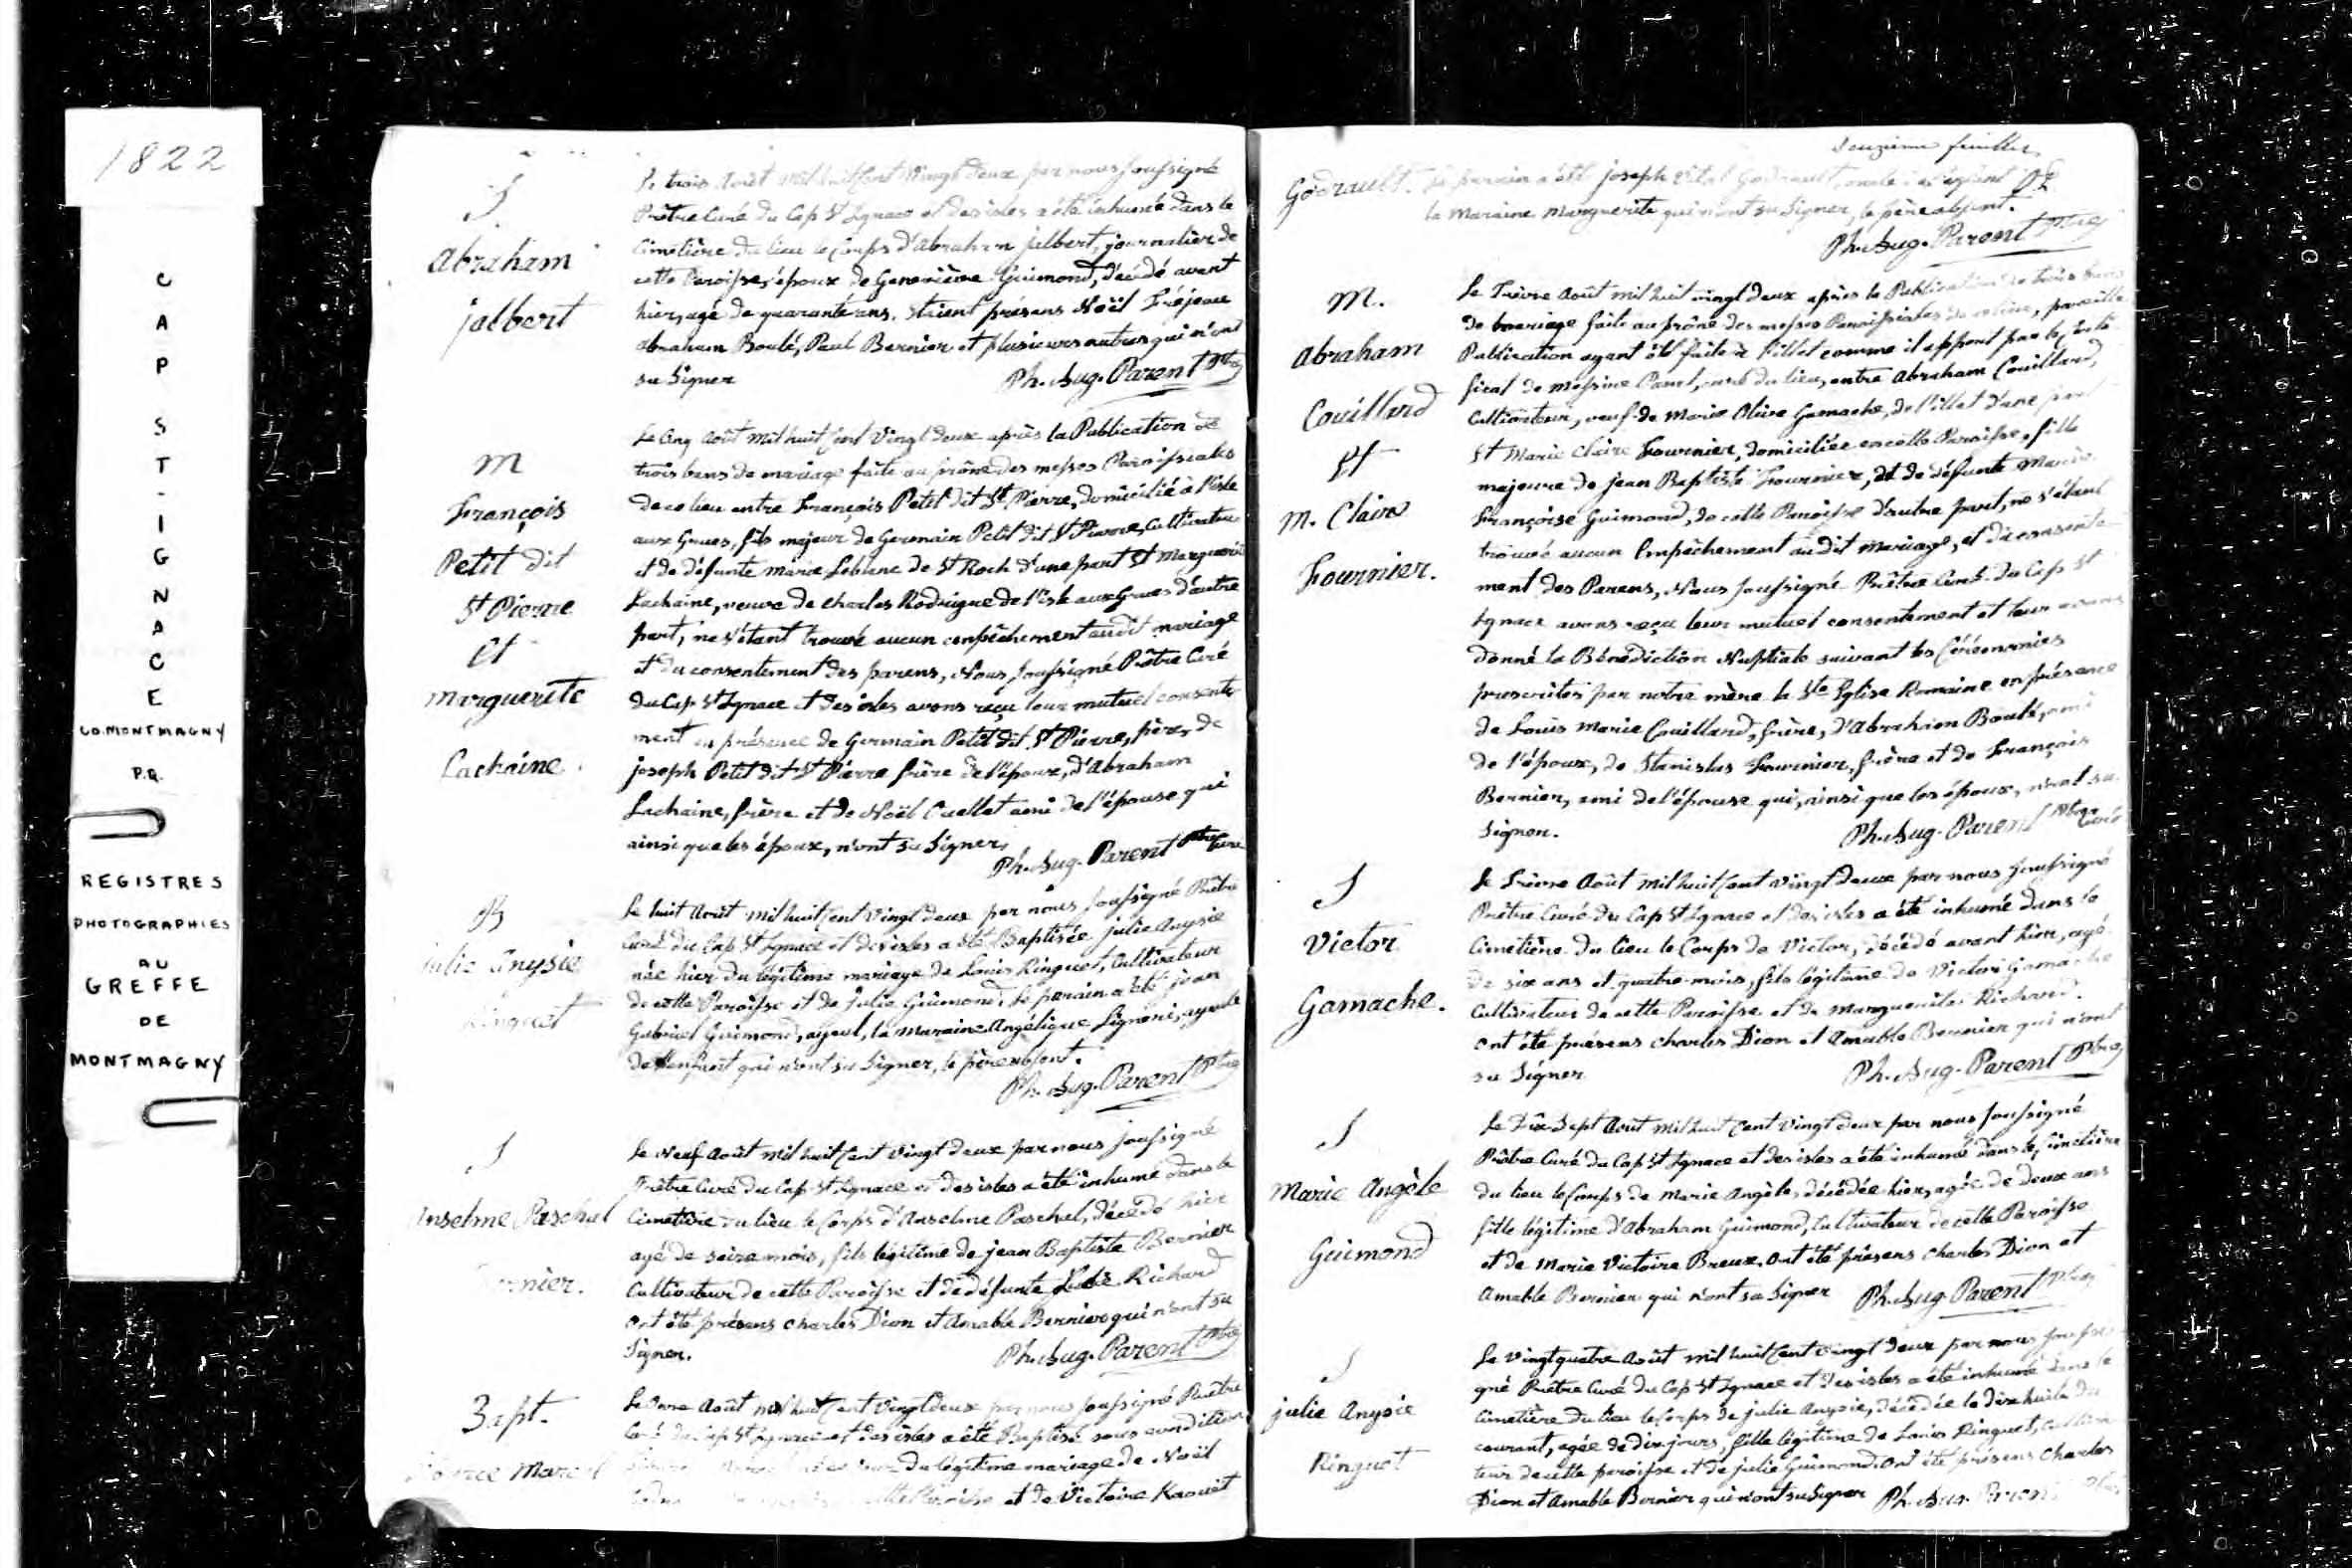 1822
CAP ST-IGNACE
CO. MONTMAGNY
P.Q.
REGISTRES
PHOTOGRAPHIES
AU
GREFFE
DE
MONTMAGNY
S
Abraham
jalbert
Le trois Août mil huit Cent Vingt deux par nous soussigné
Prêtre Curé du Cap St Ignace et des isles a été inhumée dans le
Cimetière du lieu le Corps d'Abraham jalbert, journalier de
cette Paroisse, époux de Geneviève Guimond, décédé avant
hier, agé de quarante ans. Etaient présens Noël Fréjeau
Abraham Boulé, Paul Bernier et plusieurs autres qui n'ont
su Signer Ph. Aug. Parent Ptre
M
François
Petit dit
St Pierre
et
Marguerite
Lachaine.
Le Cinq Août mil huit Cent Vingt deux après la Publication de
trois bans de mariage faite au prône des messes Paroissiales
de ce lieu entre François Petit dit St Pierre, domicilié à l'isle
aux Grues, fils majeur de Germain Petit dit St Pierre, Cultivateur
et de défunte Marie Leblanc de St Roch d'une part Et Marguerite
Lachaine, veuve de Charles Rodrigue de l'isle aux Grues d'autre
part, ne s'étant trouvé aucun empêchement audit mariage
et du consentement des parens, Nous soussigné Prêtre Curé
du Cap St Ignace et des isles avons reçu leur mutuel consente
ment en présence de Germain Petit dit St Pierre, père, de
joseph Petit dit St Pierre frère de l'époux, d'Abraham
Lachaine, frère et de Noël Ouellet ami de l'épouse qui
ainsi que les époux, n'ont su Signer,
Ph. Aug. Parent Ptre Curé
B
julie Anysie
Ringuet
Le huit Août mil huit Cent Vingt deux par nous soussigné Prêtre
Curé du Cap St Ignace et des isles a été Baptisée julie Anysie
née hier du légitime mariage de Louis Ringuet, Cultivateur
de cette Paroisse et de Julie Guimond. Le parain a été jean
Gabriel Guimond, ayeul, la maraine Angélique ayeule
de l'enfant qui n'ont su Signer, le père absent.
Ph. Aug. Parent Ptre
S
Anselme Paschal
Bernier.
Le Neuf Août mil huit Cent Vingt deux par nous soussigné
Prêtre Curé du Cap St Ignace et des isles a été inhumé dans le
Cimetière du lieu le Corps d'Anselme Paschal, décédé hier
agé de seize mois, fils légitime de jean Baptiste Bernier
Cultivateur de cette Paroisse et de défunte Richard
Ont été présens Charles Dion et Amable Bernier qui n'ont su
Signer. Ph. Aug. Parent Ptre
Bapt.
Marcel
Le Onze Août mil huit Cent Vingt Deux par nous soussigné Prêtre
Curé du Cap St Ignace et des isles a été Baptisé sous condition
du légitime mariage de Noël
cette Paroisse et de Victoire Kaouet
deuzième feuillet
Godrault. Le parain a été joseph Vital Godrault, oncle de l'enfant et
la Maraine Marguerite qui n'ont su Signer, le père absent.
Ph. Aug. Parent Ptre
M.
Abraham
Couillard
et
M. Claire
Fournier.
Le Treize Août mil huit vingt deux après la Publication de trois bans
de mariage faite au prône des messes Paroissiales de ce lieu, pareille
Publication ayant été faite à l'Islet comme il appert par le Certi
ficat de Messire Panet, curé du lieu, entre Abraham Couillard,
Cultivateur, veuf de Marie Olive Gamache, de l'Islet d'une part
Et Marie Claire Fournier, domiciliée en cette Paroisse, fille
majeure de jean Baptiste Fournier, et de défunte Marie
Françoise Guimond, de cette Paroisse d'autre part, ne s'étant
trouvé aucun Empêchement au dit Mariage, et du consente
ment des Parens, Nous soussigné Prêtre Curé du Cap St
Ignace avons reçu leur mutuel consentement et leur avons
donné la Bénédiction Nuptiale suivant les Cérémonies
prescrites par notre mère la Ste Eglise Romaine en présence
de Louis Marie Couillard, frère, d'Abraham Boulé, ami
de l'époux, de Stanislas Fournier, frère et de François
Bernier, ami de l'épouse qui, ainsi que les époux, n'ont su
Signer. Ph. Aug. Parent Ptre Curé
S
Victor
Gamache.
Le Treize Août mil huit Cent vingt deux par nous soussigné
Prêtre Curé du Cap St Ignace et des isles a été inhumé dans le
Cimetière du lieu le Corps de Victor, décédé avant hier, agé
de six ans et quatre mois, fils légitime de Victor Gamache
Cultivateur de cette Paroisse et de Marguerite Richard.
Ont été présens Charles Dion et Amable Bernier qui n'ont
su Signer Ph. Aug. Parent Ptre
S
Marie Angèle
Guimond
Le Dix Sept Août mil huit Cent vingt deux par nous soussigné
Prêtre Curé du Cap St Ignace et des isles a été inhumé dans le Cimetière
du lieu le Corps de Marie Angèle, décédée hier, agée de deux ans
fille légitime d'Abraham Guimond, Cultivateur de cette Paroisse
et de Marie Victoire Breux. Ont été présens Charles Dion et
Amable Bernier qui n'ont su Signer Ph. Aug. Parent Ptre
S
julie Anysie
Ringuet
Le Vingt quatre Août mil huit Cent vingt deux par nous soussi
gné Prêtre Curé du Cap St Ignace et des isles a été inhumé dans le
Cimetière du lieu le Corps de julie Anysie, décédée le dix huit du
courant, agée de dix jours, fille légitime de Louis Ringuet, Cultiva
teur de cette paroisse et de julie Guimond. Ont été présens Charles
Dion et Amable Bernier qui n'ont su Signer Ph. Aug. Parent Ptre